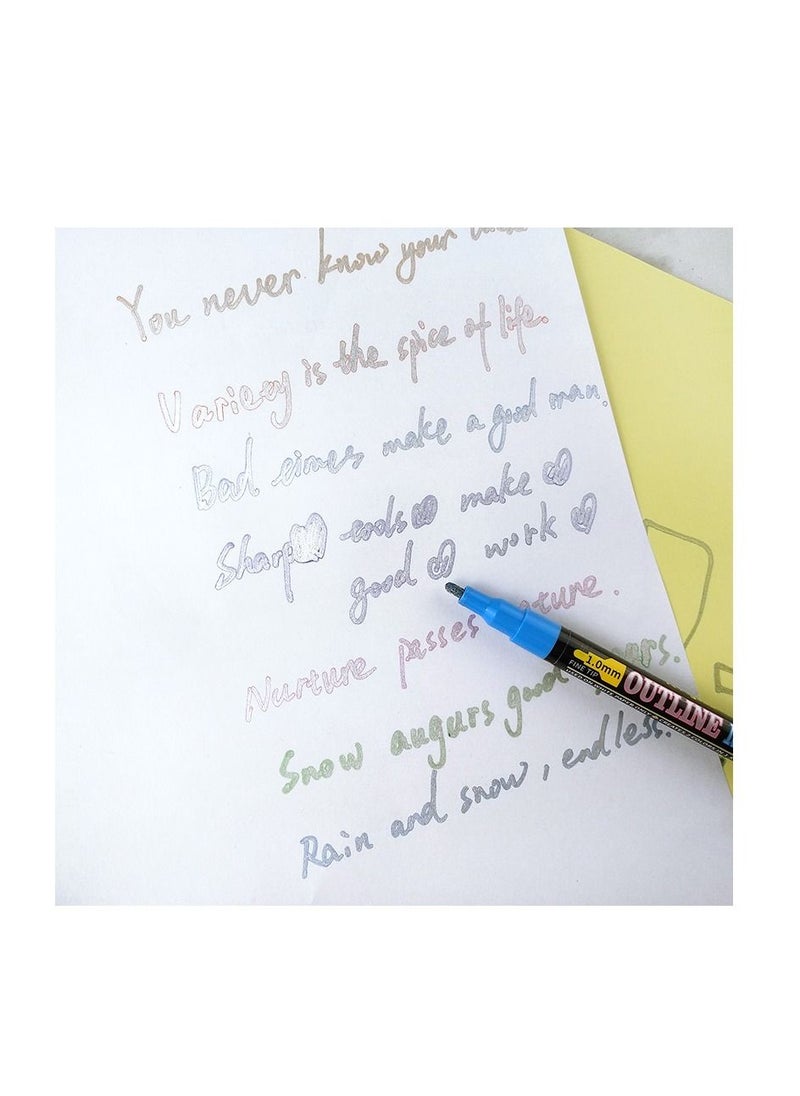 You never know your luck
Variety is the spice of life.
Bad eimes make a good man.
Sharp eools make
good work
Nurture passes nature.
Snow augurs good
Rain and snow, endless.
1.0mm
FINE TIP
OUTLINE